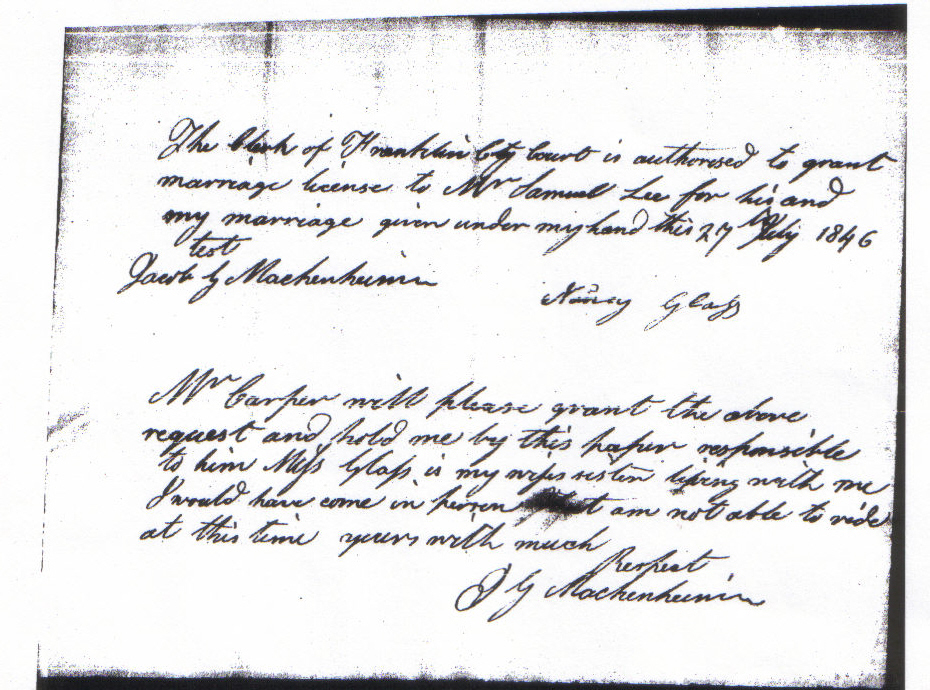 The Clerk of Franklin Cty Court is authorised to grant
marriage license to Mr Samuel Lee for his and
my marriage given under my hand this 27th July 1846
test
Jacob G Mackenheimer
Nancy Glass
Mr Carper will please grant the above
request and hold me by this paper responsible
to him Miss Glass is my wifes sister living with me
I would have come in person but am not able to ride
at this time yours with much
Respect
J G Mackenheimer